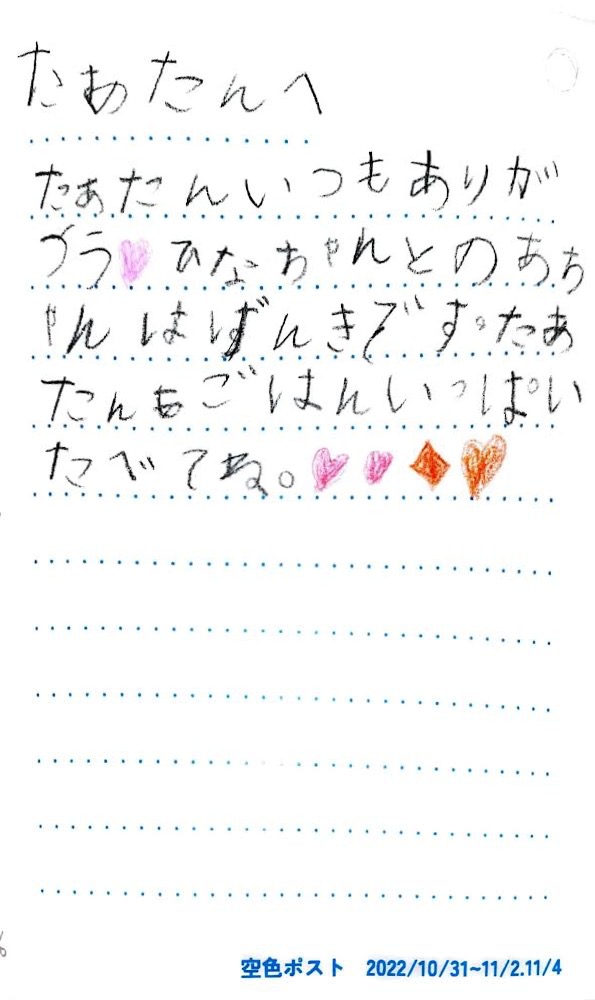 たあたんへ
たぁたんいつもありが
ゔう ひなちゃんとのあち
ゃんはげんきです。たぁ
たんもごはんいっぱい
たべてね。
空色ポスト 2022/10/31~11/2.11/4